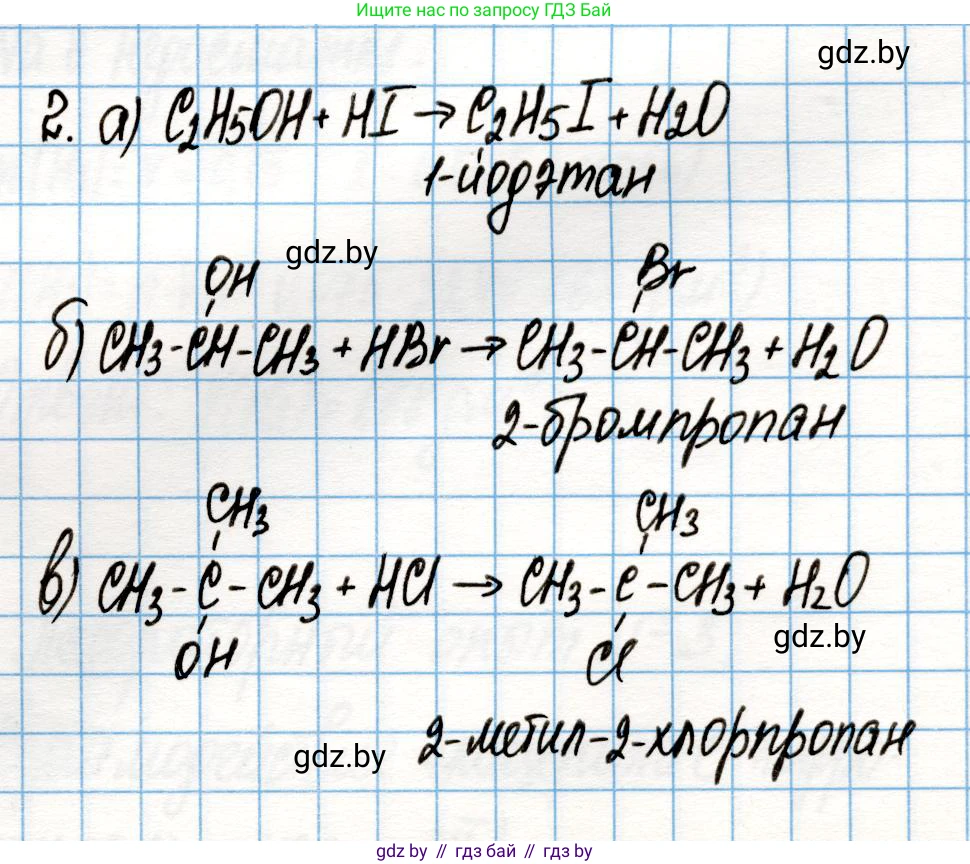 Ищите нас по запросу ГДЗ Бай
gdz.by
2. а) C₂H₅OH + HI → C₂H₅I + H₂O
1-йодэтан
gdz.by
OH Br
б) CH₃-CH-CH₃ + HBr → CH₃-CH-CH₃ + H₂O
2-бромпропан
CH₃ CH₃
в) CH₃-C-CH₃ + HCl → CH₃-C-CH₃ + H₂O
gdz.by
OH Cl
2-метил-2-хлорпропан
gdz.by
gdz.by // гдз бай // гдз by